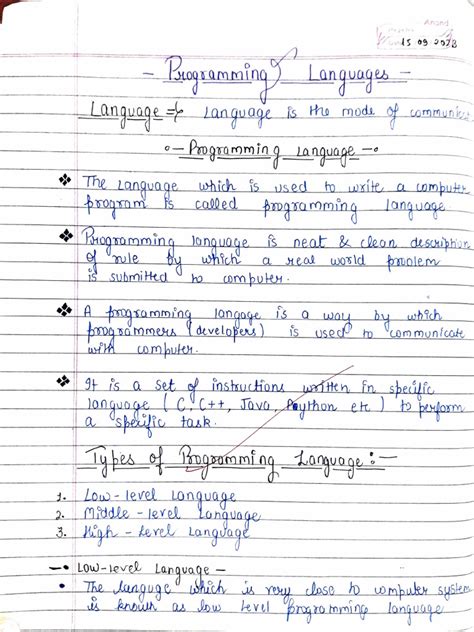 Anand
15 09 2023
- Programming Languages -
Language => Language is the mode of communicat
- Programming Language -
❖ The Language which is used to write a computer
program is called programming language.
❖ Programming language is neat & clean description
of rule by which a real world problem
is submitted to computer.
❖ A programming langage is a way by which
programmers (developers) is used to communicate
with computer.
❖ It is a set of instructions written in specific
language ( C, C++, Java, Python etc ) to perform
a specific task.
Types of Programming Language :-
1. Low - level Language
2. Middle - level Language
3. High - Level Language
—• Low-level Language -
• The languge which is very close to computer system
is known as low level programming language